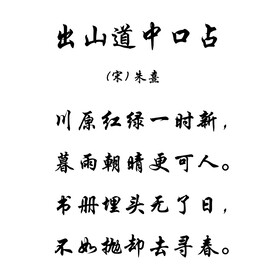 出山道中口占
（宋）朱熹
川原红绿一时新，
暮雨朝晴更可人。
书册埋头无了日，
不如抛却去寻春。